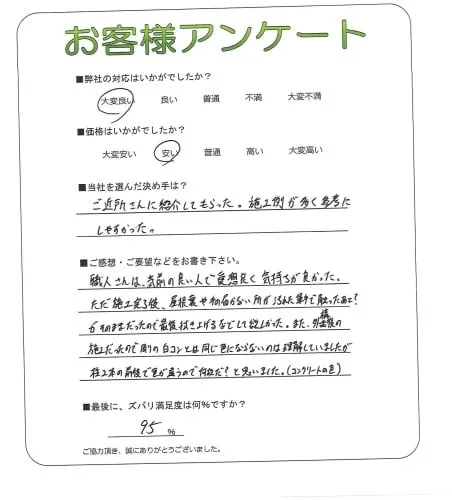 お客様アンケート
■弊社の対応はいかがでしたか？
大変良い 良い 普通 不満 大変不満
■価格はいかがでしたか？
大変安い 安い 普通 高い 大変高い
■当社を選んだ決め手は？
ご近所さんに紹介してもらった。施工例が多く参考に
しやすかった。
■ご感想・ご要望などをお書き下さい。
職人さんは、気前の良い人で愛想良く気持ちが良かった。
ただ施工完了後、屋根裏や
がそのままだったので最後拭き上げるなどして欲しかった。また、外構後の
施工だったので周りの白コンとは同じ色にならないのは理解していましたが
柱2本の前後で色が違うので何故だ？と思いました。(コンクリートの色)
■最後に、ズバリ満足度は何％ですか？
95 %
ご協力頂き、誠にありがとうございました。